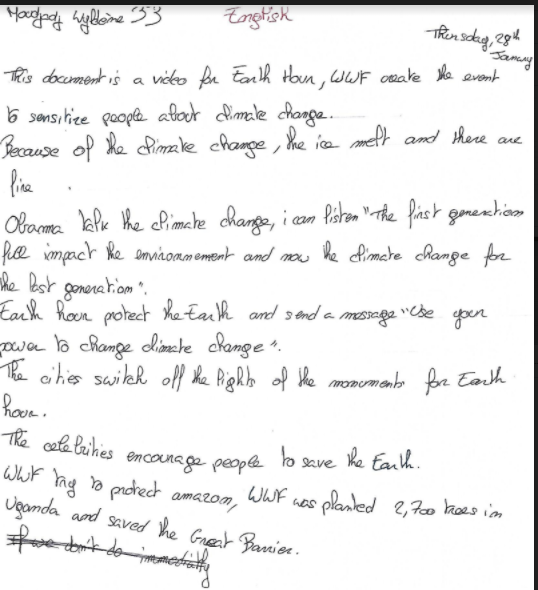 English
Thursday, 28th
January
This document is a video for Earth Hour, WWF create the event
to sensitize people about climate change.
Because of the climate change, the ice melt and there are
fire
Obama talk the climate change, i can listen "The first generation
full impact the environnement and now the climate change for
the last generation".
Earth hour protect the Earth and send a message "Use your
power to change climate change".
The cities switch off the lights of the monuments for Earth
hour.
The celebrities encourage people to save the Earth.
WWF try to protect amazon, WWF was planted 2,700 trees in
Uganda and saved the Great Barrier.
If we don't do immediatly